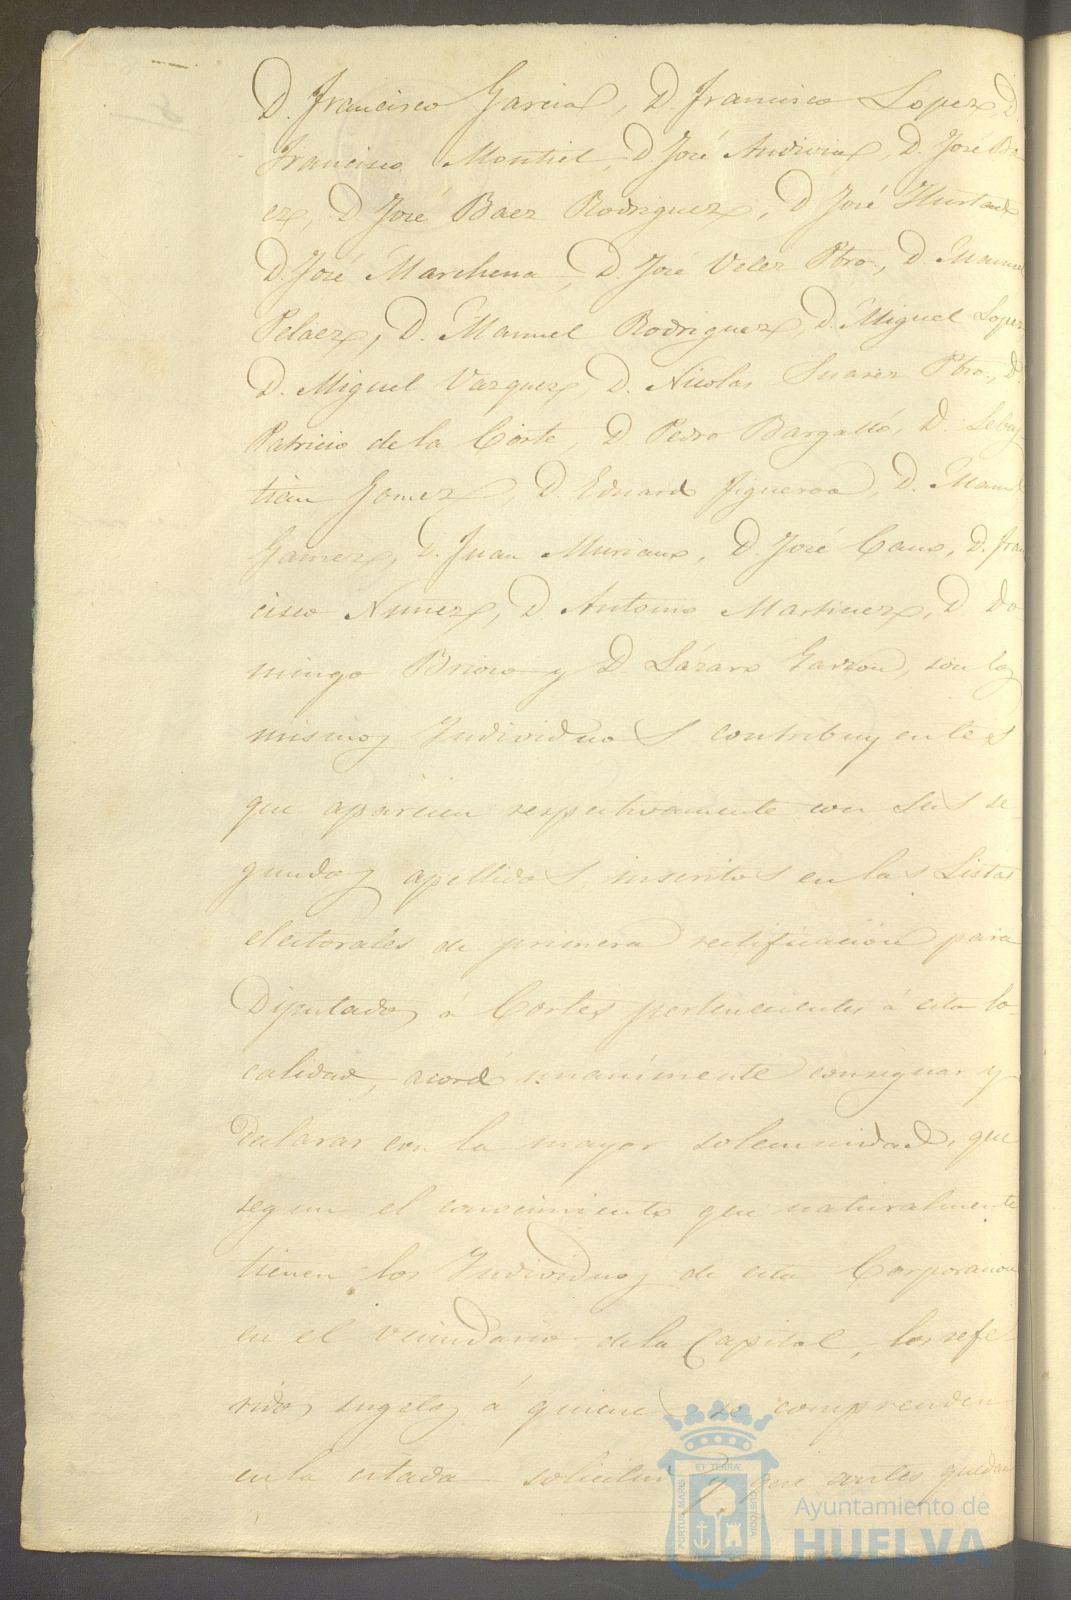 D. Francisco Garcia, D. Francisco Lopez, D.
Francisco Montiel, D José Andivia, D. José Ba
ez, D José Baez Rodriguez, D José Hurtado
D. José Marchena, D. José Velez Pbro., D. Manuel
Pelaez, D. Manuel Rodriguez, D. Miguel Lopez,
D. Miguel Vazquez, D. Nicolas Suarez Pbro., D.
Patricio de la Corte, D. Pedro Bargalló, D. Sebas
tian Gomez, D. Eduardo Figueroa, D. Manuel
Gamez, D. Juan Muriano, D. José Cano, D. Fran
cisco Nuñez, D Antonio Martinez, D. Do
mingo Brioso y D. Lázaro Garzon, son los
mismos Individuos contribuyentes
que aparecen respectivamente con sus se
gundos apellidos, inscritos en las Listas
electorales de primera rectificacion para
Diputados á Cortes pertenecientes á esta lo-
calidad, acordó unanimente consignar y
declarar con la mayor solemnidad, que
segun el conocimiento que naturalmente
tienen los Individuos de esta Corporacion
en el vecindario de la Capital, los refe
ridos sugetos á quienes se comprenden
en la citada solicitud y que antes quedan
PORTUS MARIS ET TERRÆ CUSTODIA
Ayuntamiento de
HUELVA